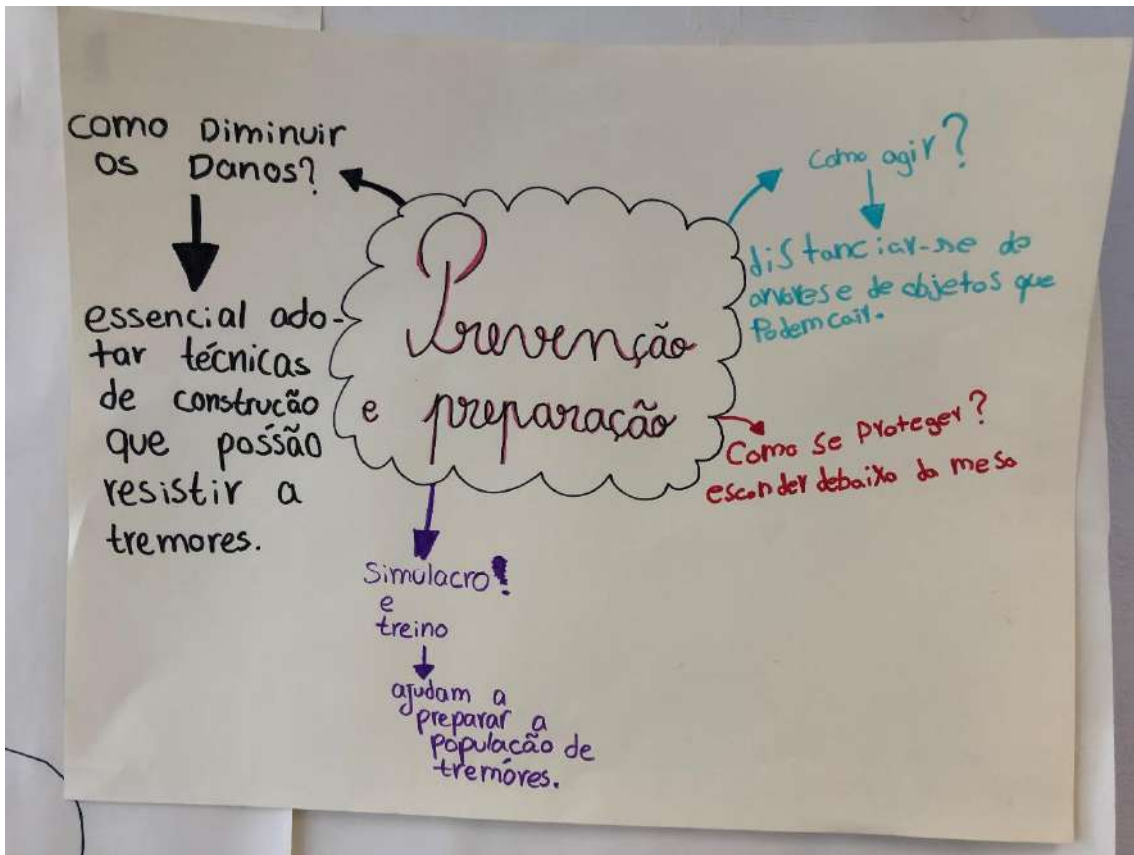 como Diminuir
os Danos?
essencial ado-
tar técnicas
de construcão
que possão
resistir a
tremores.
Prevenção
e preparação
Como agir?
distanciar-se de
arvores e de objetos que
Podem cair.
Como se Proteger?
esconder debaixo da mesa
Simulacro!
e
treino
ajudam a
preparar a
populacão de
tremóres.